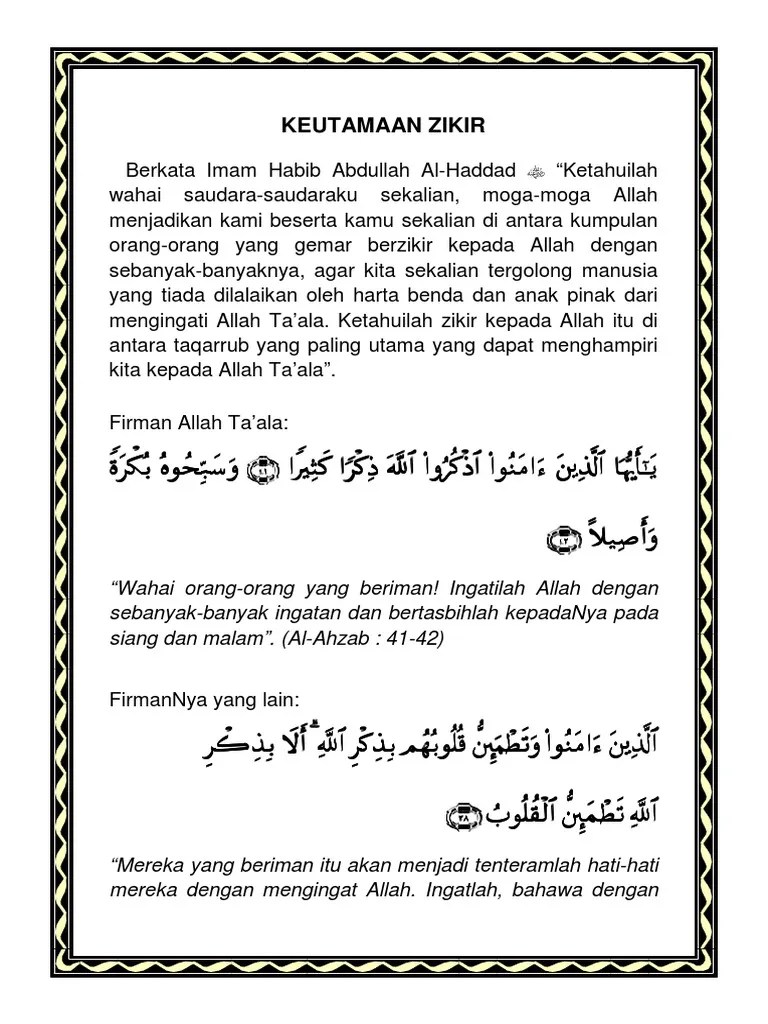 KEUTAMAAN ZIKIR
Berkata Imam Habib Abdullah Al-Haddad “Ketahuilah
wahai saudara-saudaraku sekalian, moga-moga Allah
menjadikan kami beserta kamu sekalian di antara kumpulan
orang-orang yang gemar berzikir kepada Allah dengan
sebanyak-banyaknya, agar kita sekalian tergolong manusia
yang tiada dilalaikan oleh harta benda dan anak pinak dari
mengingati Allah Ta’ala. Ketahuilah zikir kepada Allah itu di
antara taqarrub yang paling utama yang dapat menghampiri
kita kepada Allah Ta’ala”.
Firman Allah Ta’ala:
يَـٰٓأَيُّهَا ٱلَّذِينَ ءَامَنُواْ ٱذْكُرُواْ ٱللَّهَ ذِكْرًا كَثِيرًا ﴿٤١﴾ وَسَبِّحُوهُ بُكْرَةً
وَأَصِيلاً ﴿٤٢﴾
“Wahai orang-orang yang beriman! Ingatilah Allah dengan
sebanyak-banyak ingatan dan bertasbihlah kepadaNya pada
siang dan malam”. (Al-Ahzab : 41-42)
FirmanNya yang lain:
ٱلَّذِينَ ءَامَنُواْ وَتَطْمَئِنُّ قُلُوبُهُم بِذِكْرِ ٱللَّهِ ۗ أَلَا بِذِكْرِ
ٱللَّهِ تَطْمَئِنُّ ٱلْقُلُوبُ ﴿٢٨﴾
“Mereka yang beriman itu akan menjadi tenteramlah hati-hati
mereka dengan mengingat Allah. Ingatlah, bahawa dengan